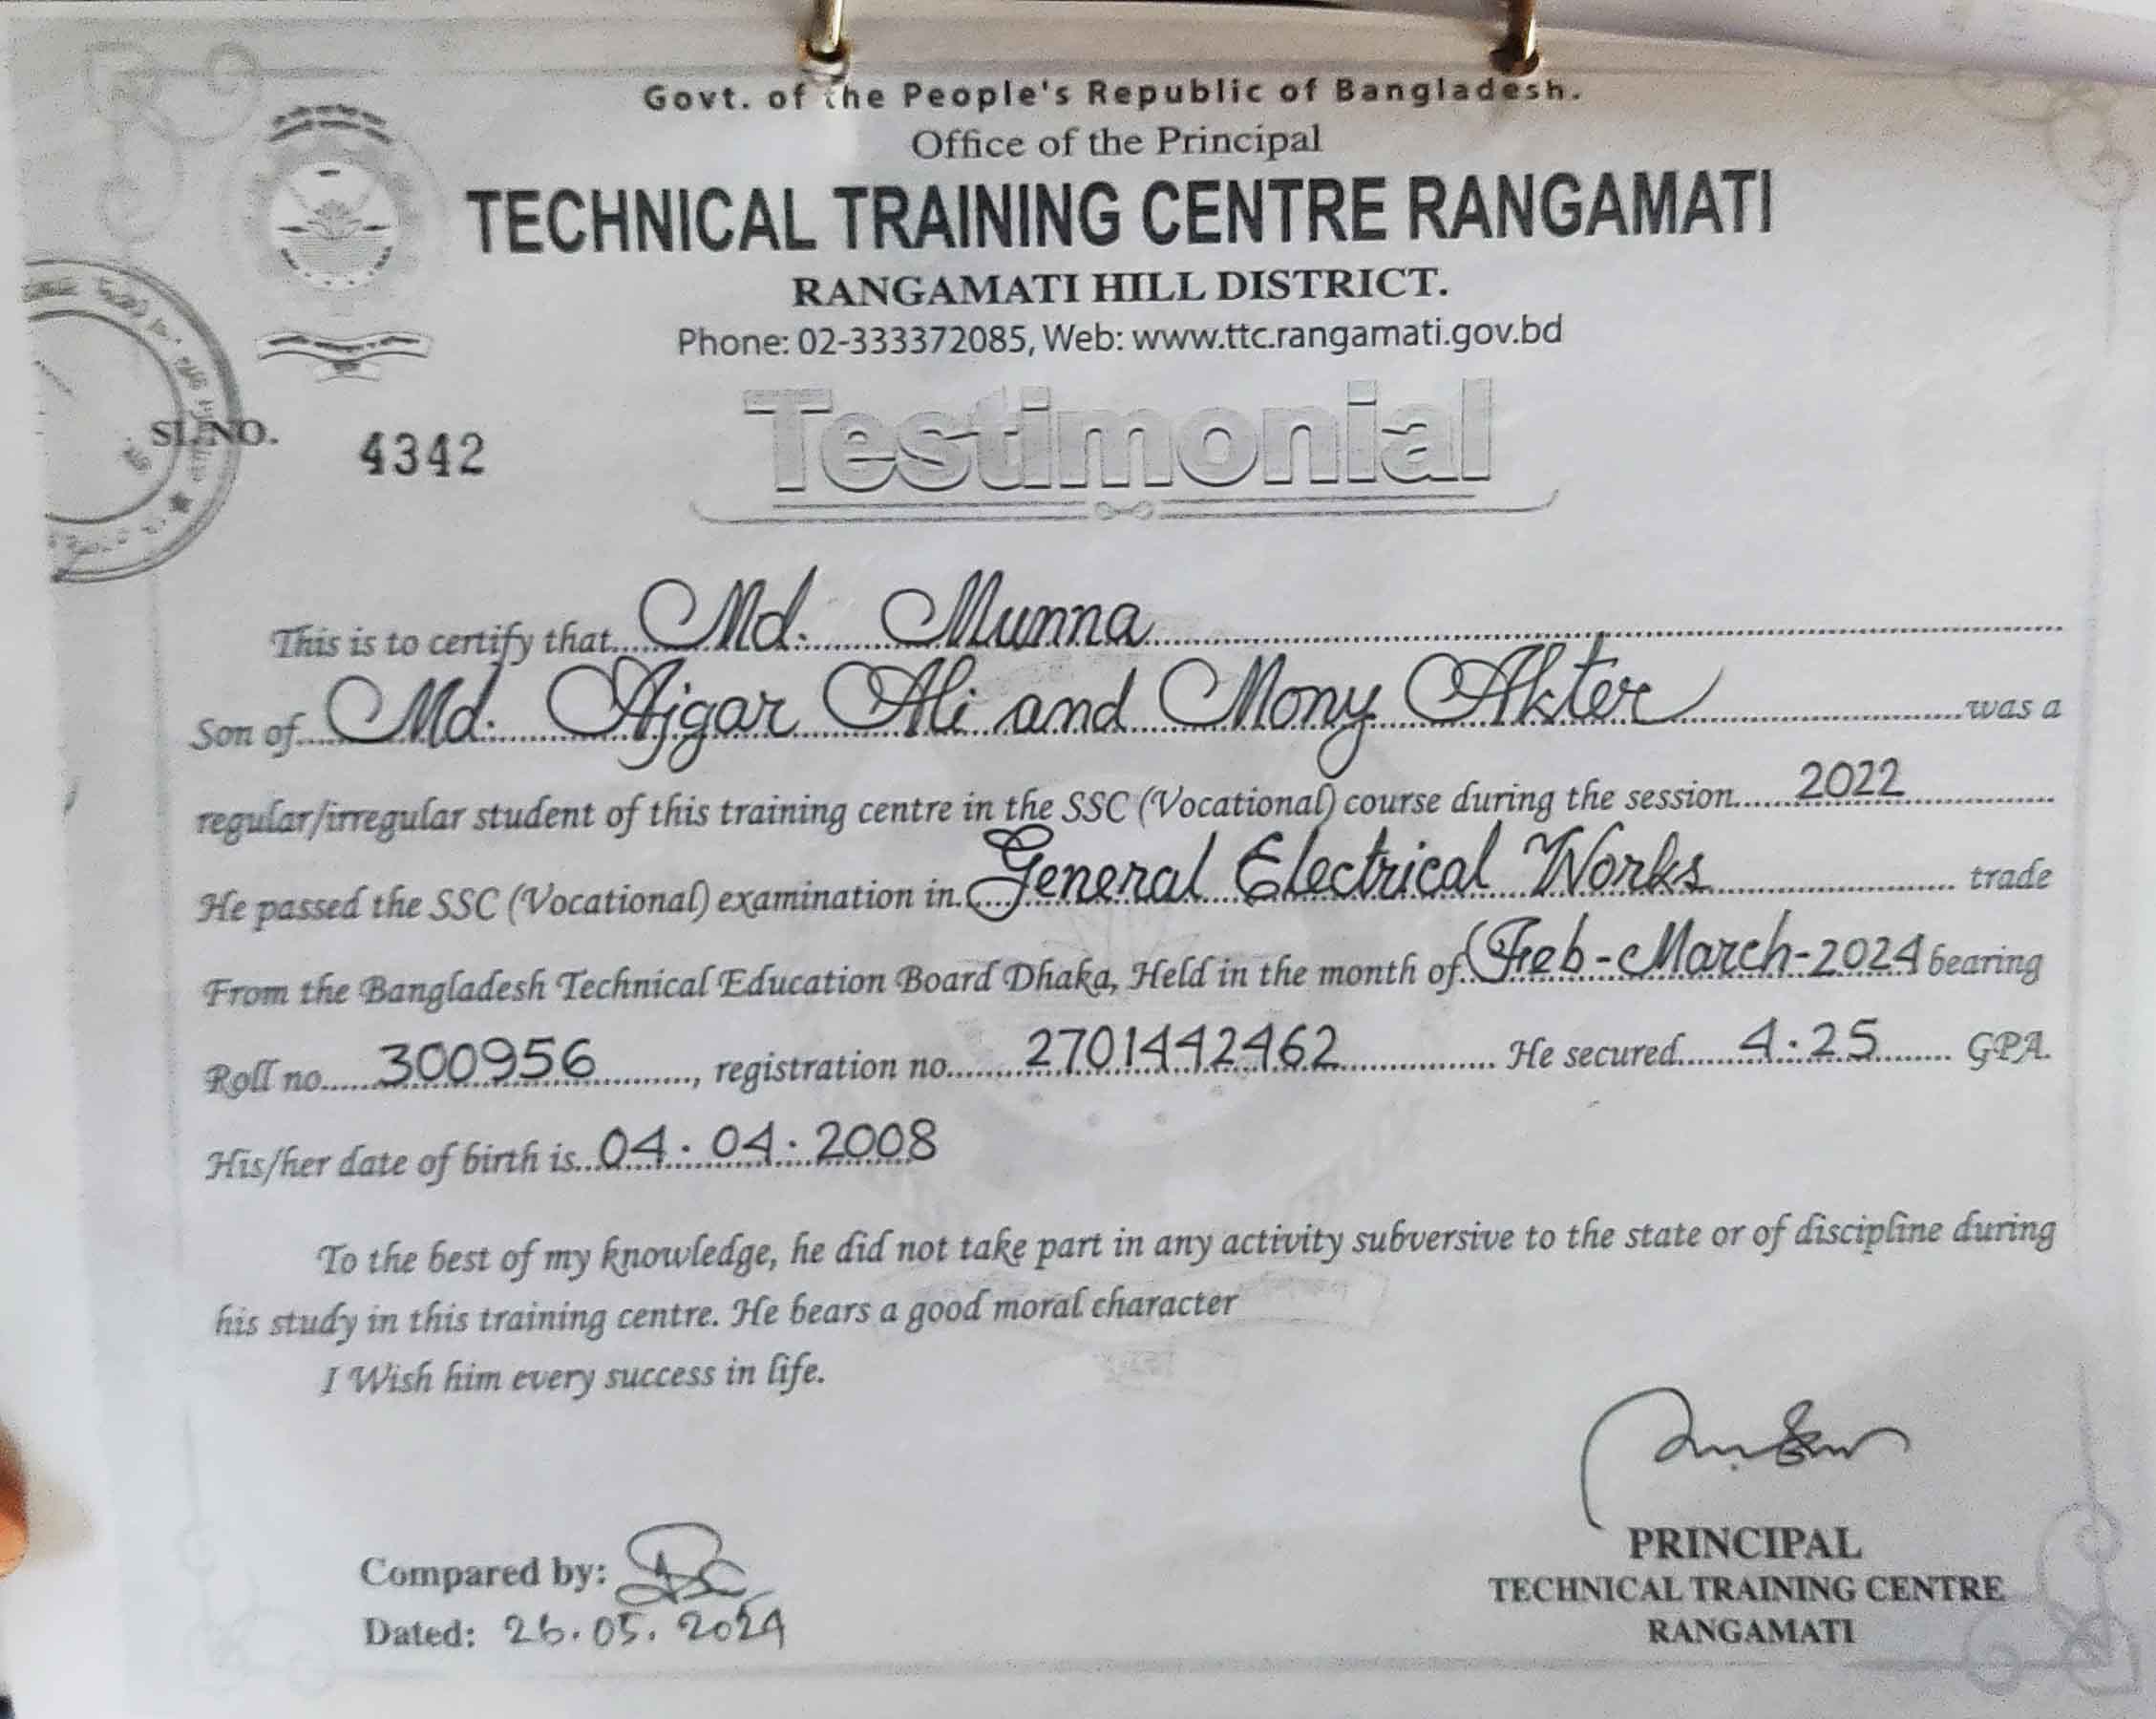 Govt. of the People's Republic of Bangladesh.
Office of the Principal
TECHNICAL TRAINING CENTRE RANGAMATI
RANGAMATI HILL DISTRICT.
Phone: 02-333372085, Web: www.ttc.rangamati.gov.bd
Testimonial
SL.NO. 4342
This is to certify that Md. Munna
Son of Md. Ajgar Ali and Mony Akter was a
regular/irregular student of this training centre in the SSC (Vocational) course during the session 2022
He passed the SSC (Vocational) examination in General Electrical Works trade
From the Bangladesh Technical Education Board Dhaka, Held in the month of Feb-March-2024 bearing
Roll no 300956, registration no 2701442462 He secured 4.25 GPA.
His/her date of birth is 04.04.2008
To the best of my knowledge, he did not take part in any activity subversive to the state or of discipline during
his study in this training centre. He bears a good moral character
I Wish him every success in life.
Compared by:
Dated: 26.05.2024
PRINCIPAL
TECHNICAL TRAINING CENTRE
RANGAMATI